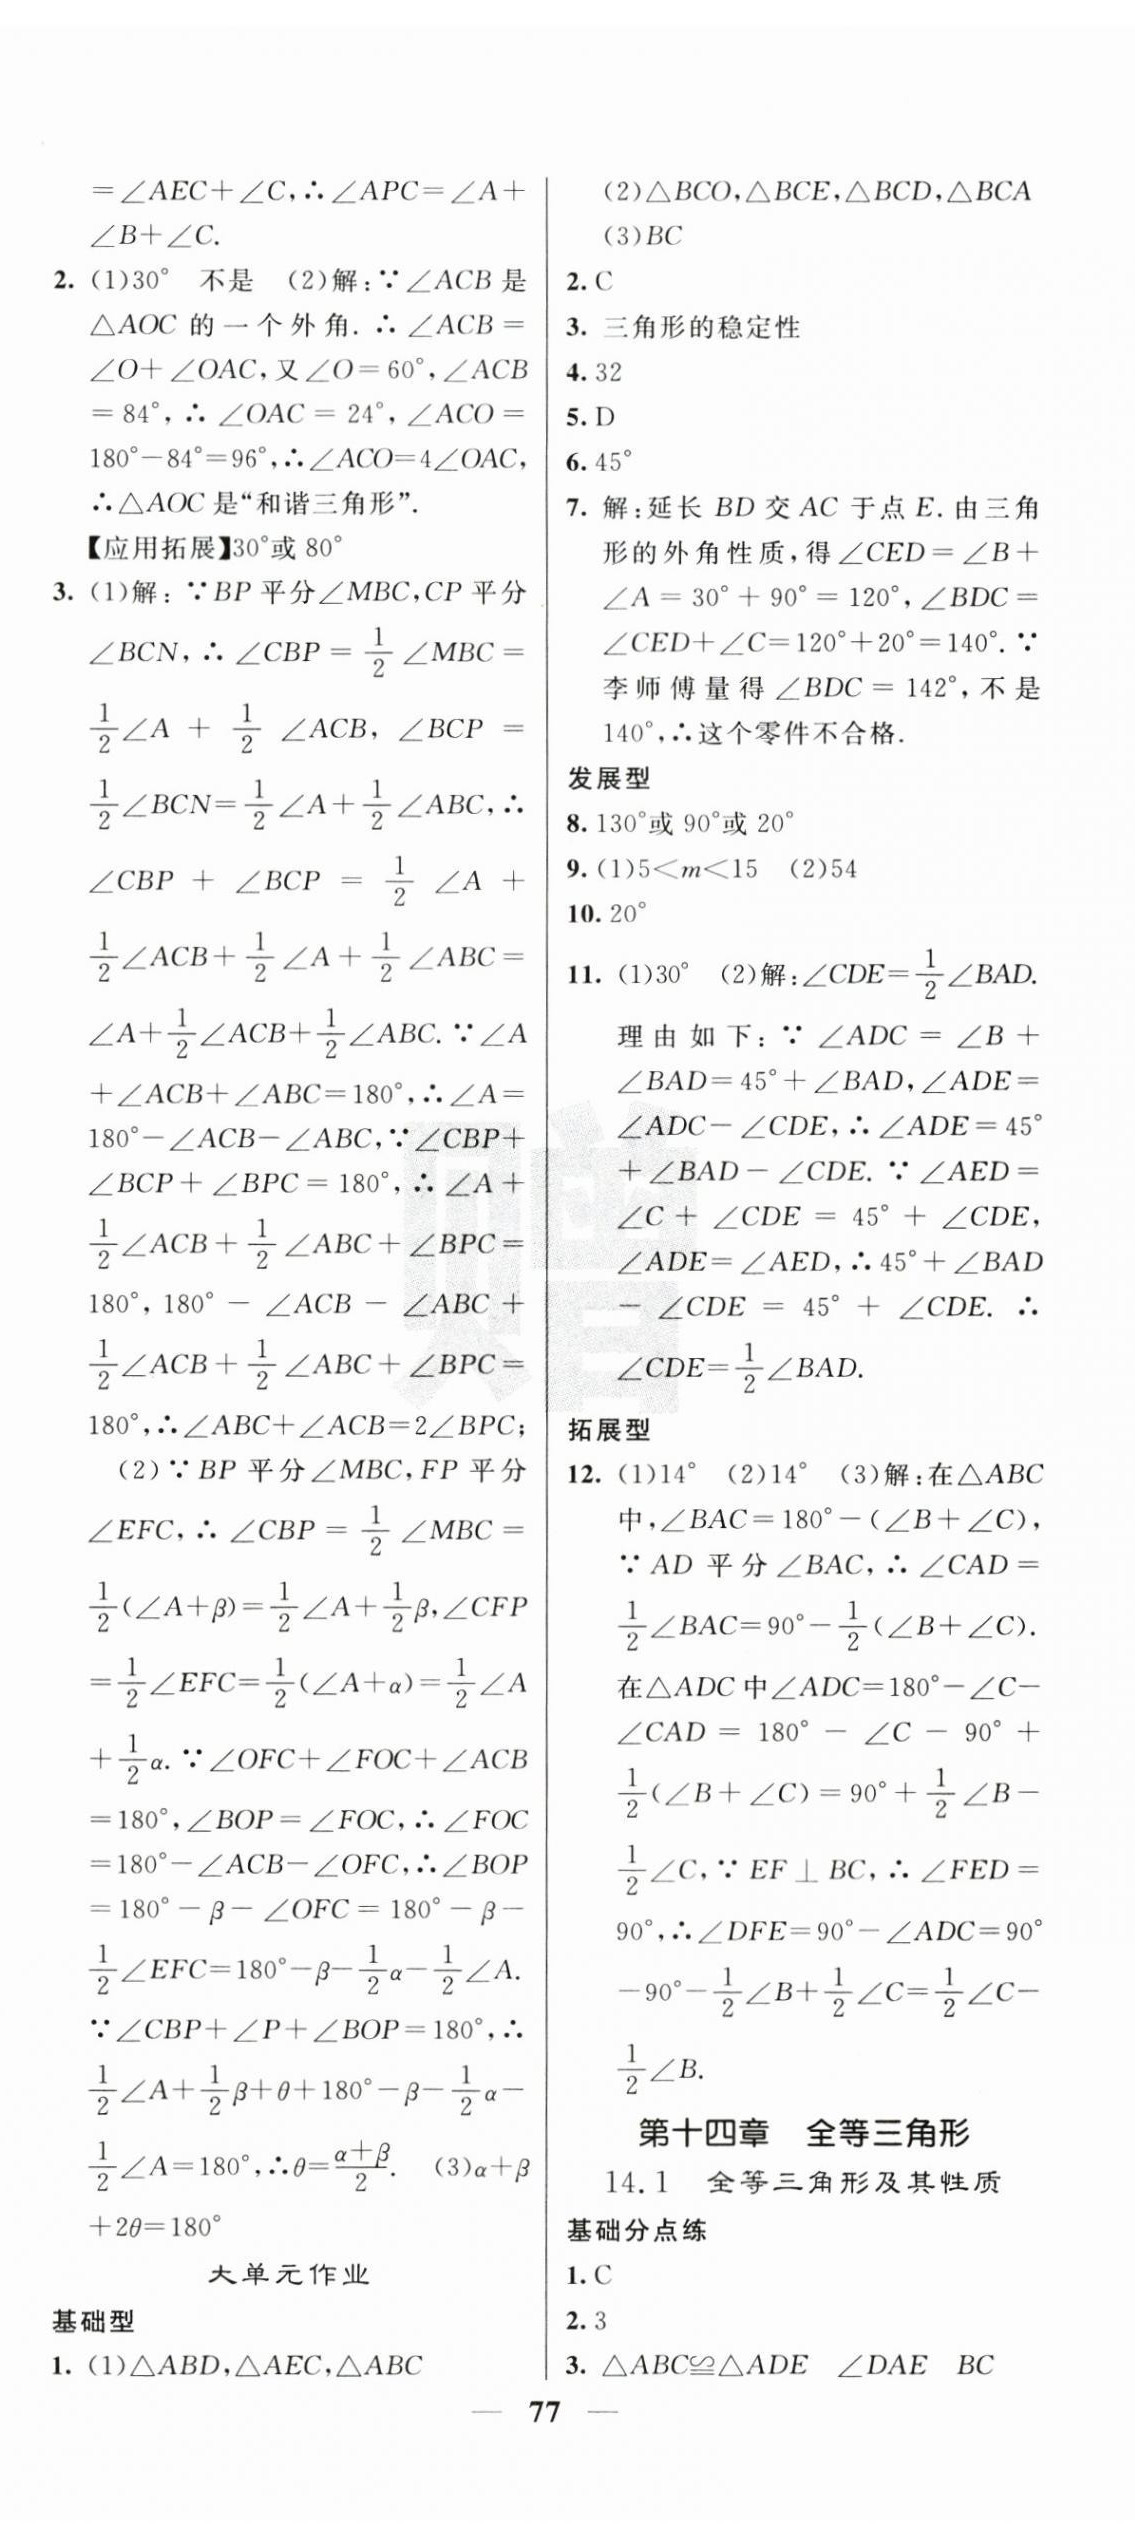 =∠AEC+∠C,∴∠APC=∠A+
∠B+∠C.
2. (1)30° 不是 (2)解:∵∠ACB是
△AOC的一个外角.∴∠ACB=
∠O+∠OAC,又∠O=60°,∠ACB
=84°,∴∠OAC=24°,∠ACO=
180°-84°=96°,∴∠ACO=4∠OAC,
∴△AOC是“和谐三角形”.
【应用拓展】30°或80°
3. (1)解:∵BP平分∠MBC,CP平分
∠BCN,∴∠CBP=1/2∠MBC=
1/2∠A+1/2∠ACB,∠BCP=
1/2∠BCN=1/2∠A+1/2∠ABC,∴
∠CBP+∠BCP=1/2∠A+
1/2∠ACB+1/2∠A+1/2∠ABC=
∠A+1/2∠ACB+1/2∠ABC.∵∠A
+∠ACB+∠ABC=180°,∴∠A=
180°-∠ACB-∠ABC,∵∠CBP+
∠BCP+∠BPC=180°,∴∠A+
1/2∠ACB+1/2∠ABC+∠BPC=
180°,180°-∠ACB-∠ABC+
1/2∠ACB+1/2∠ABC+∠BPC=
180°,∴∠ABC+∠ACB=2∠BPC;
(2)∵BP平分∠MBC,FP平分
∠EFC,∴∠CBP=1/2∠MBC=
1/2(∠A+β)=1/2∠A+1/2β,∠CFP
=1/2∠EFC=1/2(∠A+α)=1/2∠A
+1/2α.∵∠OFC+∠FOC+∠ACB
=180°,∠BOP=∠FOC,∴∠FOC
=180°-∠ACB-∠OFC,∴∠BOP
=180°-β-∠OFC=180°-β-
1/2∠EFC=180°-β-1/2α-1/2∠A.
∵∠CBP+∠P+∠BOP=180°,∴
1/2∠A+1/2β+θ+180°-β-1/2α-
1/2∠A=180°,∴θ=(α+β)/2. (3)α+β
+2θ=180°
大单元作业
基础型
1. (1)△ABD,△AEC,△ABC
(2)△BCO,△BCE,△BCD,△BCA
(3)BC
2. C
3. 三角形的稳定性
4. 32
5. D
6. 45°
7. 解:延长BD交AC于点E.由三角
形的外角性质,得∠CED=∠B+
∠A=30°+90°=120°,∠BDC=
∠CED+∠C=120°+20°=140°.∵
李师傅量得∠BDC=142°,不是
140°,∴这个零件不合格.
发展型
8. 130°或90°或20°
9. (1)5<m<15 (2)54
10. 20°
11. (1)30° (2)解:∠CDE=1/2∠BAD.
理由如下:∵∠ADC=∠B+
∠BAD=45°+∠BAD,∠ADE=
∠ADC-∠CDE,∴∠ADE=45°
+∠BAD-∠CDE.∵∠AED=
∠C+∠CDE=45°+∠CDE,
∠ADE=∠AED,∴45°+∠BAD
-∠CDE=45°+∠CDE.∴
∠CDE=1/2∠BAD.
拓展型
12. (1)14° (2)14° (3)解:在△ABC
中,∠BAC=180°-(∠B+∠C),
∵AD平分∠BAC,∴∠CAD=
1/2∠BAC=90°-1/2(∠B+∠C).
在△ADC中∠ADC=180°-∠C-
∠CAD=180°-∠C-90°+
1/2(∠B+∠C)=90°+1/2∠B-
1/2∠C,∵EF⊥BC,∴∠FED=
90°,∴∠DFE=90°-∠ADC=90°
-90°-1/2∠B+1/2∠C=1/2∠C-
1/2∠B.
第十四章 全等三角形
14.1 全等三角形及其性质
基础分点练
1. C
2. 3
3. △ABC≌△ADE ∠DAE BC
— 77 —